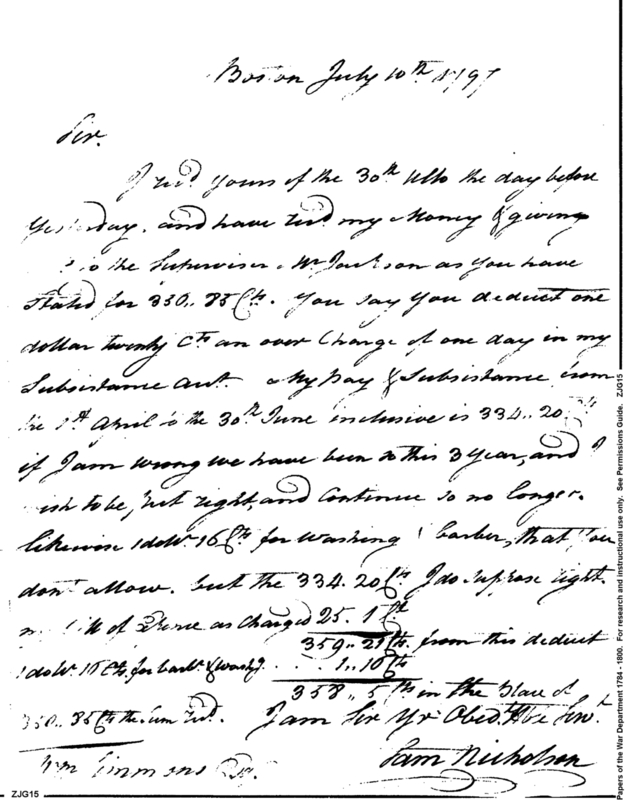 Boston July 10th 1797
Sir.
I recd yours of the 30th Ulto the day before
yesterday. and have recd my Money & giving
to the Supervisor Mr Jackson as you have
stated for 350.. 85 Cts. You say you deduct one
dollar twenty Cts an over Charge of one day in my
Subsistance Acct. My Pay & Subsistance from
the 1st April to the 30th June inclusive is 334.. 20
if I am wrong we have been so this 3 year, and I
ish to be, put right, and Continue so no longer.
likewise 1 dollr. 16 Cts for washing & barber, that you
dont allow. but the 334. 20 Cts I do suppose right.
of as Charged 25. 1 Ct
359.. 21 Cts. from this deduct
1 dollr. 16 Cts. for barbr & washg. 1.. 16 Cts
358.. 5 Cts in the Place of
350.. 85 Cts the Sum recd. I am Sir Yr Obedt Hbe Servt.
Wm Simmons Esqr. Sam Nicholson
ZJG15
Papers of the War Department 1784 - 1800. For research and instructional use only. See Permissions Guide. ZJG15